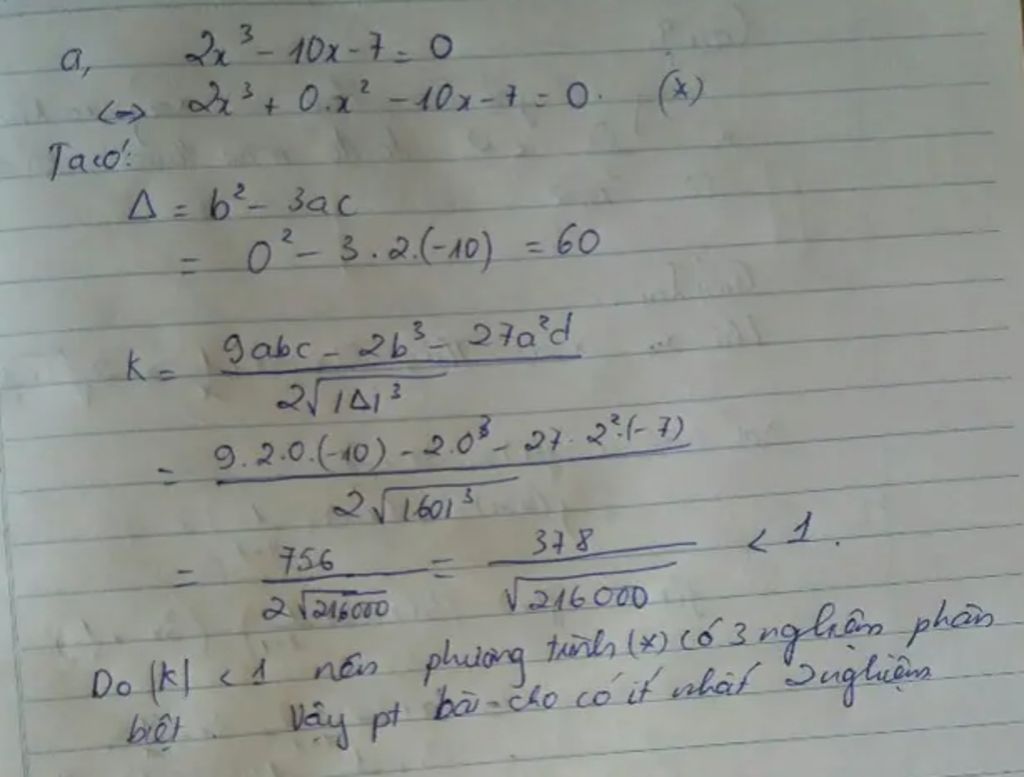 a, 2x³ - 10x - 7 = 0
<=> 2x³ + 0.x² - 10x - 7 = 0. (*)
Ta có:
Δ = b² - 3ac
= 0² - 3.2.(-10) = 60
k = (9abc - 2b³ - 27a²d) / (2√|Δ|³)
= (9.2.0.(-10) - 2.0³ - 27.2².(-7)) / (2√|60|³)
= 756 / (2√216000) = 378 / √216000 < 1.
Do |k| < 1 nên phương trình (*) có 3 nghiệm phân
biệt. Vậy pt bài cho có ít nhất 2 nghiệm